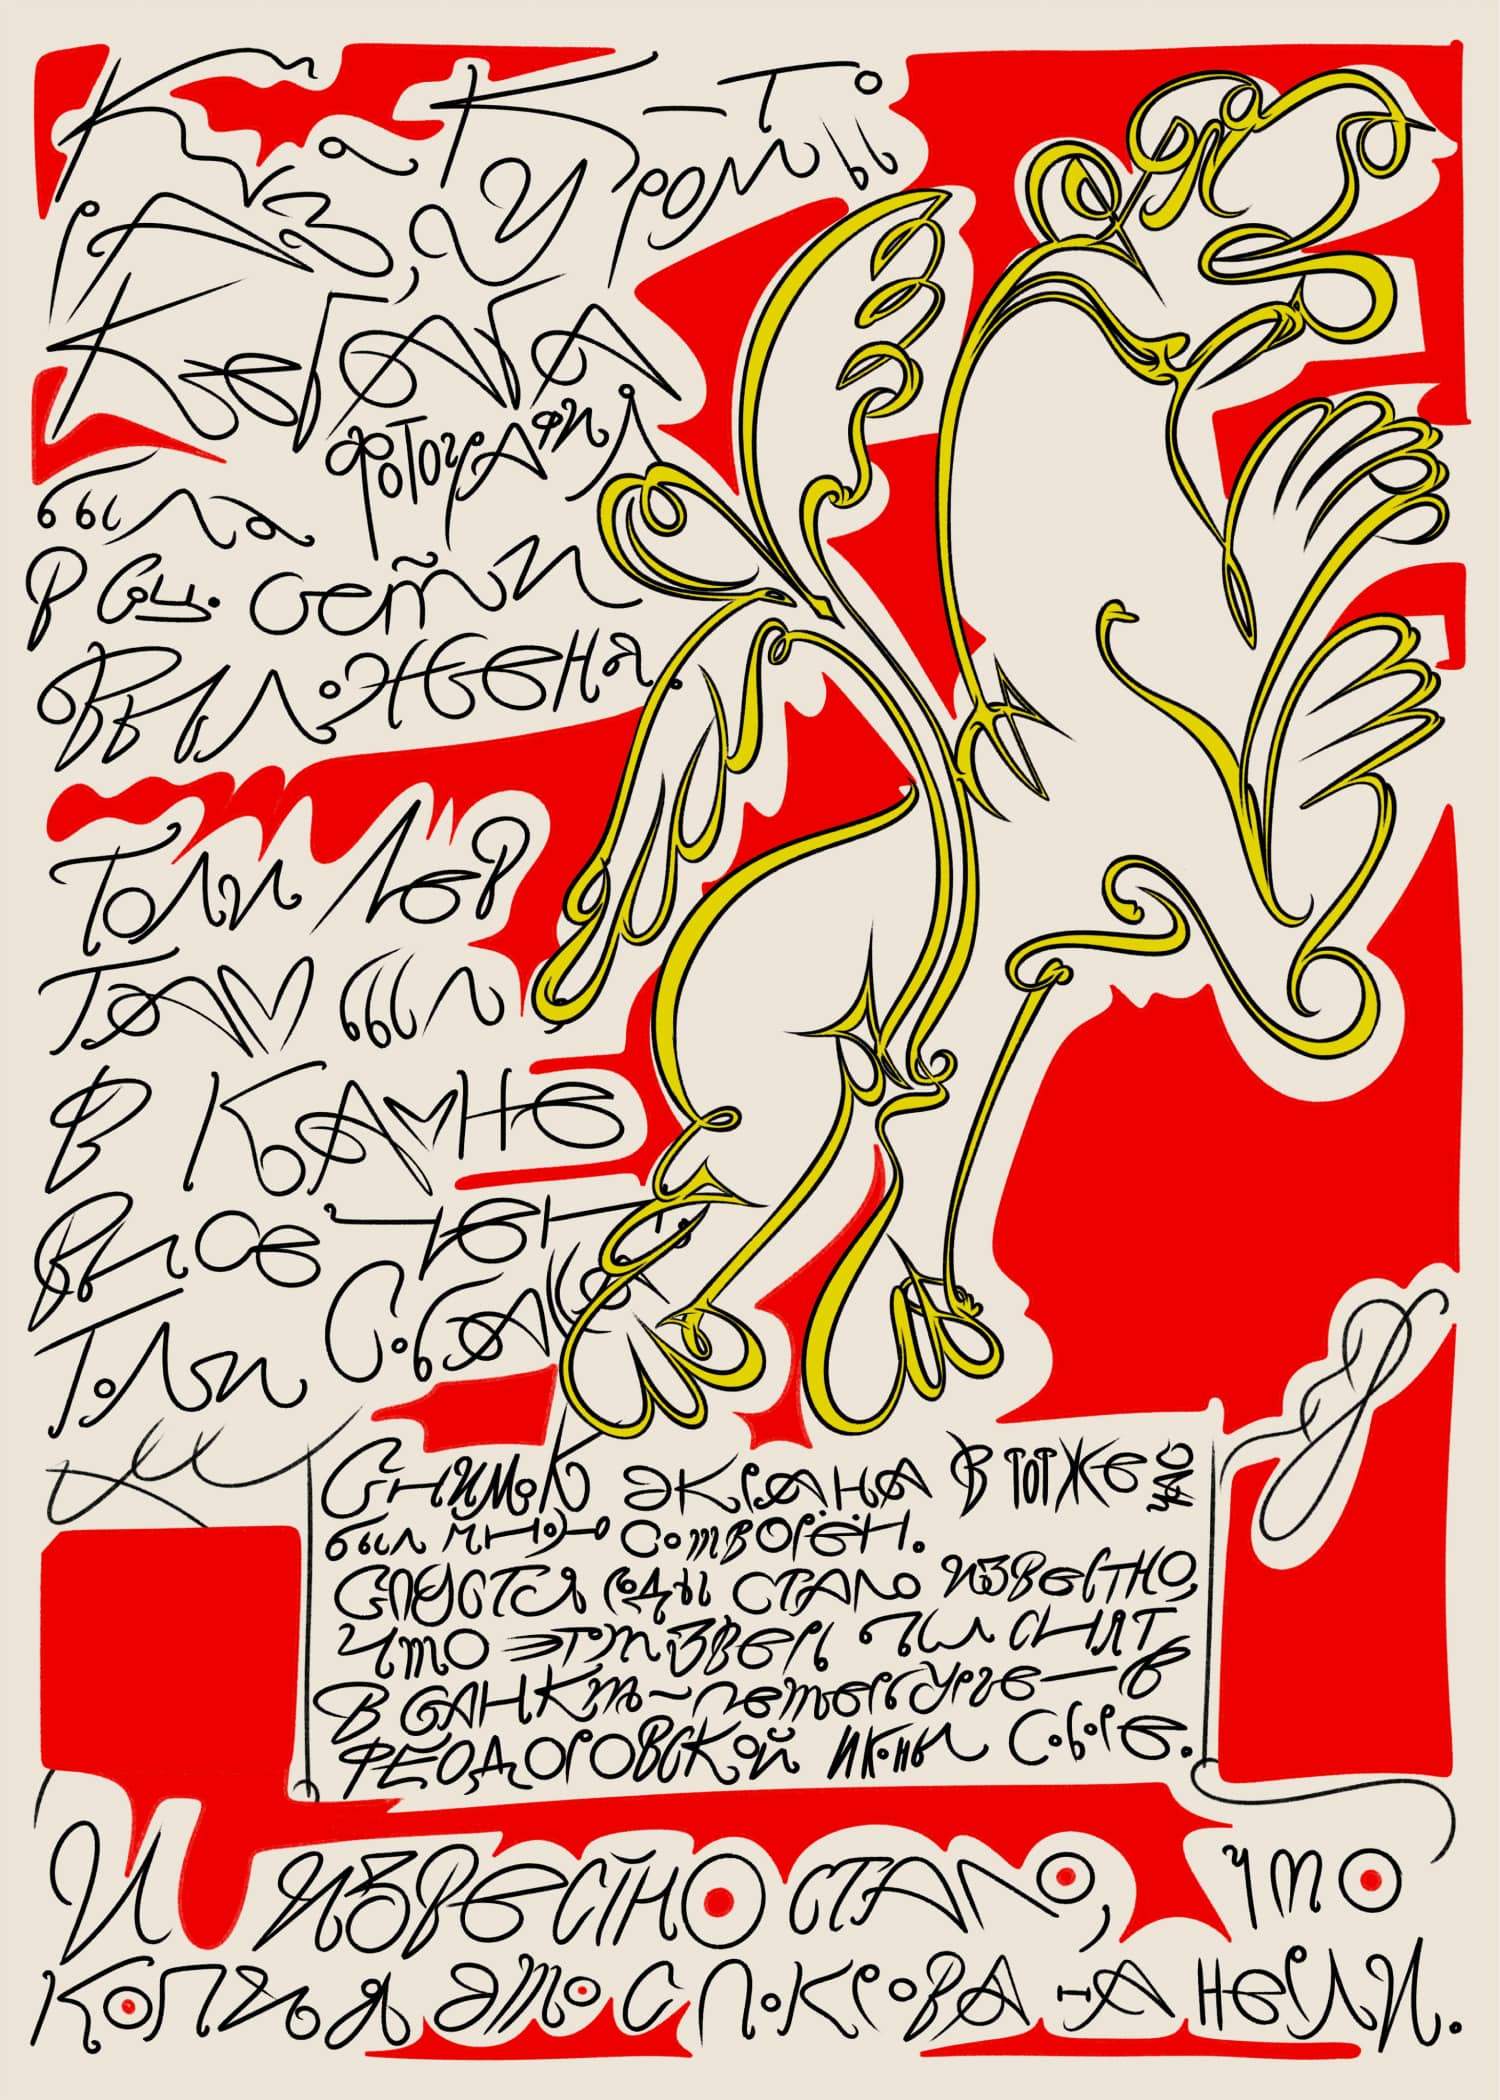 Как-то
раз у Ромы
фотография
была
в соц. сети
выложена.
Толи лев
там был
в камне
высечен
Толи собака
Снимок экрана в тот же час
был мною сотворён.
Спустя годы стало известно,
что этот зверь был снят
в Санкт-Петербурге — в
Феодоровской иконы соборе.
И известно стало, что
копия это с Покрова на Нерли.